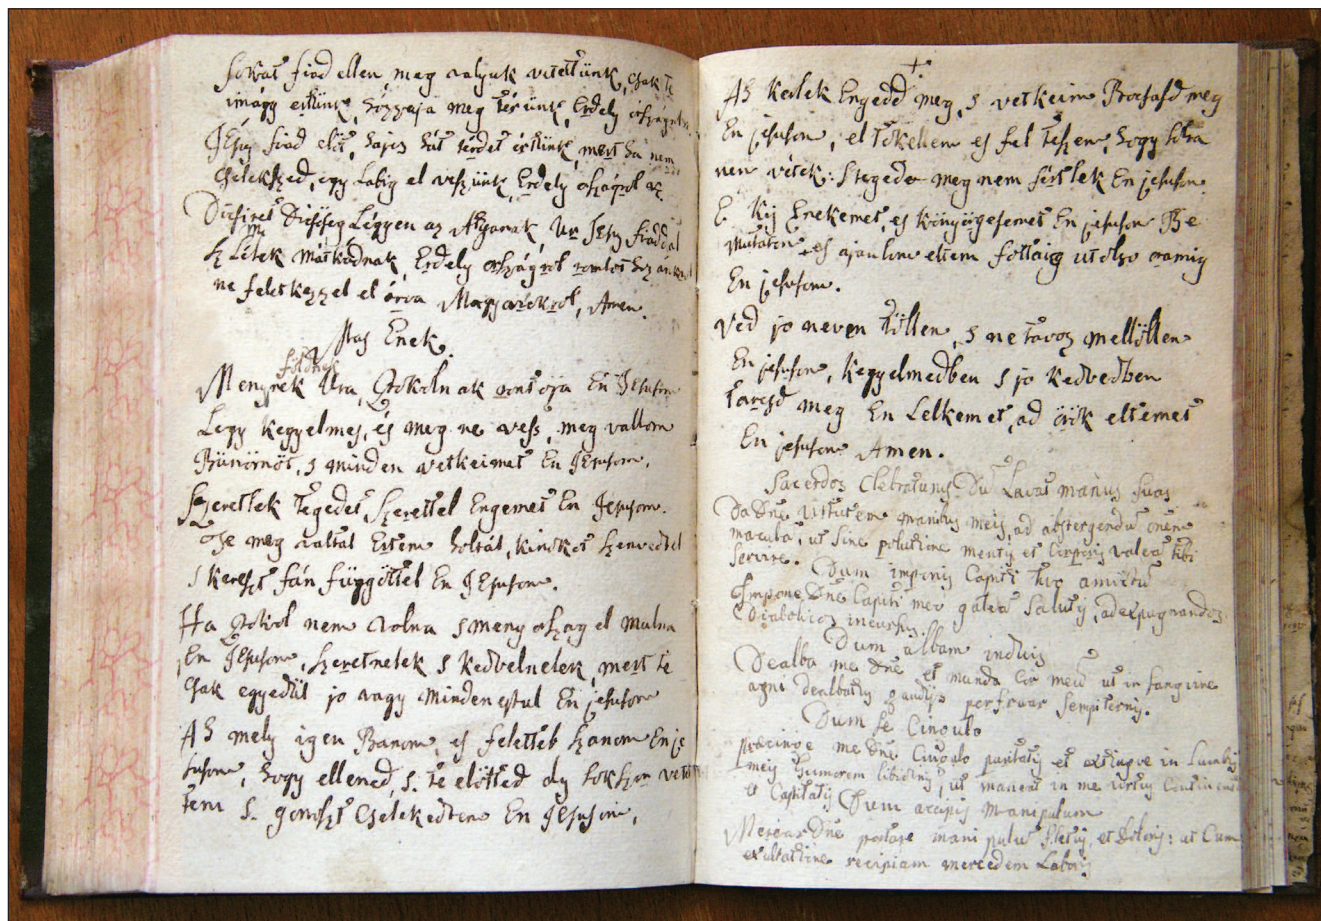 fiad ellen meg valyuk vetettünk, csak te
imagy ertünk, hozzaja meg terünk, Erdely
Jesus fiad elöt, hajcz hát terdet értünk, mert ha nem
cselekszed, egy labig el veszünk, Erdely országrol az
Dücsiret Dücsöseg Légyen az Atyanak, Ur Jesus fiaddal
Sz Lélek
ne feletkezzel el árva Magyarokrol, Amen.
Mas Enek.
földnek
Mennyek Ura, Pokolnak rontoja En Jesusom
Légy kegyelmes, és meg ne vess, meg vallom
Bünömöt, s minden vetkeimet En Jesusom.
Szeretlek tegedet, Szerettel Engemet En Jesusom.
meg valtál Ertem holtál, kinokot szenvedtél
s kereszt fán függöttel En Jesusom.
Ha Pokol nem volna s meny orszag el mulna
En Jesusom, szeretnelek s kedvelnelek, mert te
csak egyedül jo vagy mindenestul En jesusom
AZ mely igen Banom, es felettéb szanom En je
susom, hogy ellened, s te elötted oly sokszor vetet
tem s gonoszt cselekedtem En Jesusom.
†
AZ kerlek Engedd meg, s vetkeim Bocsasd meg
En jesusom, el tökellem es fel teszem, hogy soha
nem vétek: s tegedet meg nem sértlek En jesusom.
E kis Enekemet, es könyörgesemet En jesusom Be
mutatom es ajanlom eltem fottaig utolso oramig
En jesusom.
Ved jo neven töllem, s ne tavoz mellöllem
En jesusom, kegyelmedben s jo kedvedben
tarcsd meg En Lelkemet, ad örök eltemet
En jesusom Amen.
Sacerdos Clebraturus Du Lavat manus suas
Da Dne virtutem manibus meis, ad abstergendu onem
macula, ut sine polutione mentis et corporis valea tibi
servire. Dum imponis Capiti tuo amictu
Impone Dne Capiti meo galea salutis, ad expugnandos
Diabolicos incursus.
Dum albam induis
Dealba me Dne et munda Cor meu ut in sangvine
agni dealbatus gaudijs perfruar sempiternis.
Dum se Cingulo
Praecinge me Dne Cingulo puritatis et extingve in Lumbis
meis humorem libidinis, ut maneat in me virtus Continentia
et Castitatis Dum accipis Manipulum
Merear Dne portare manipulu fletus, et doloris: ut Cum
exultatione recipiam mercedem Laboris